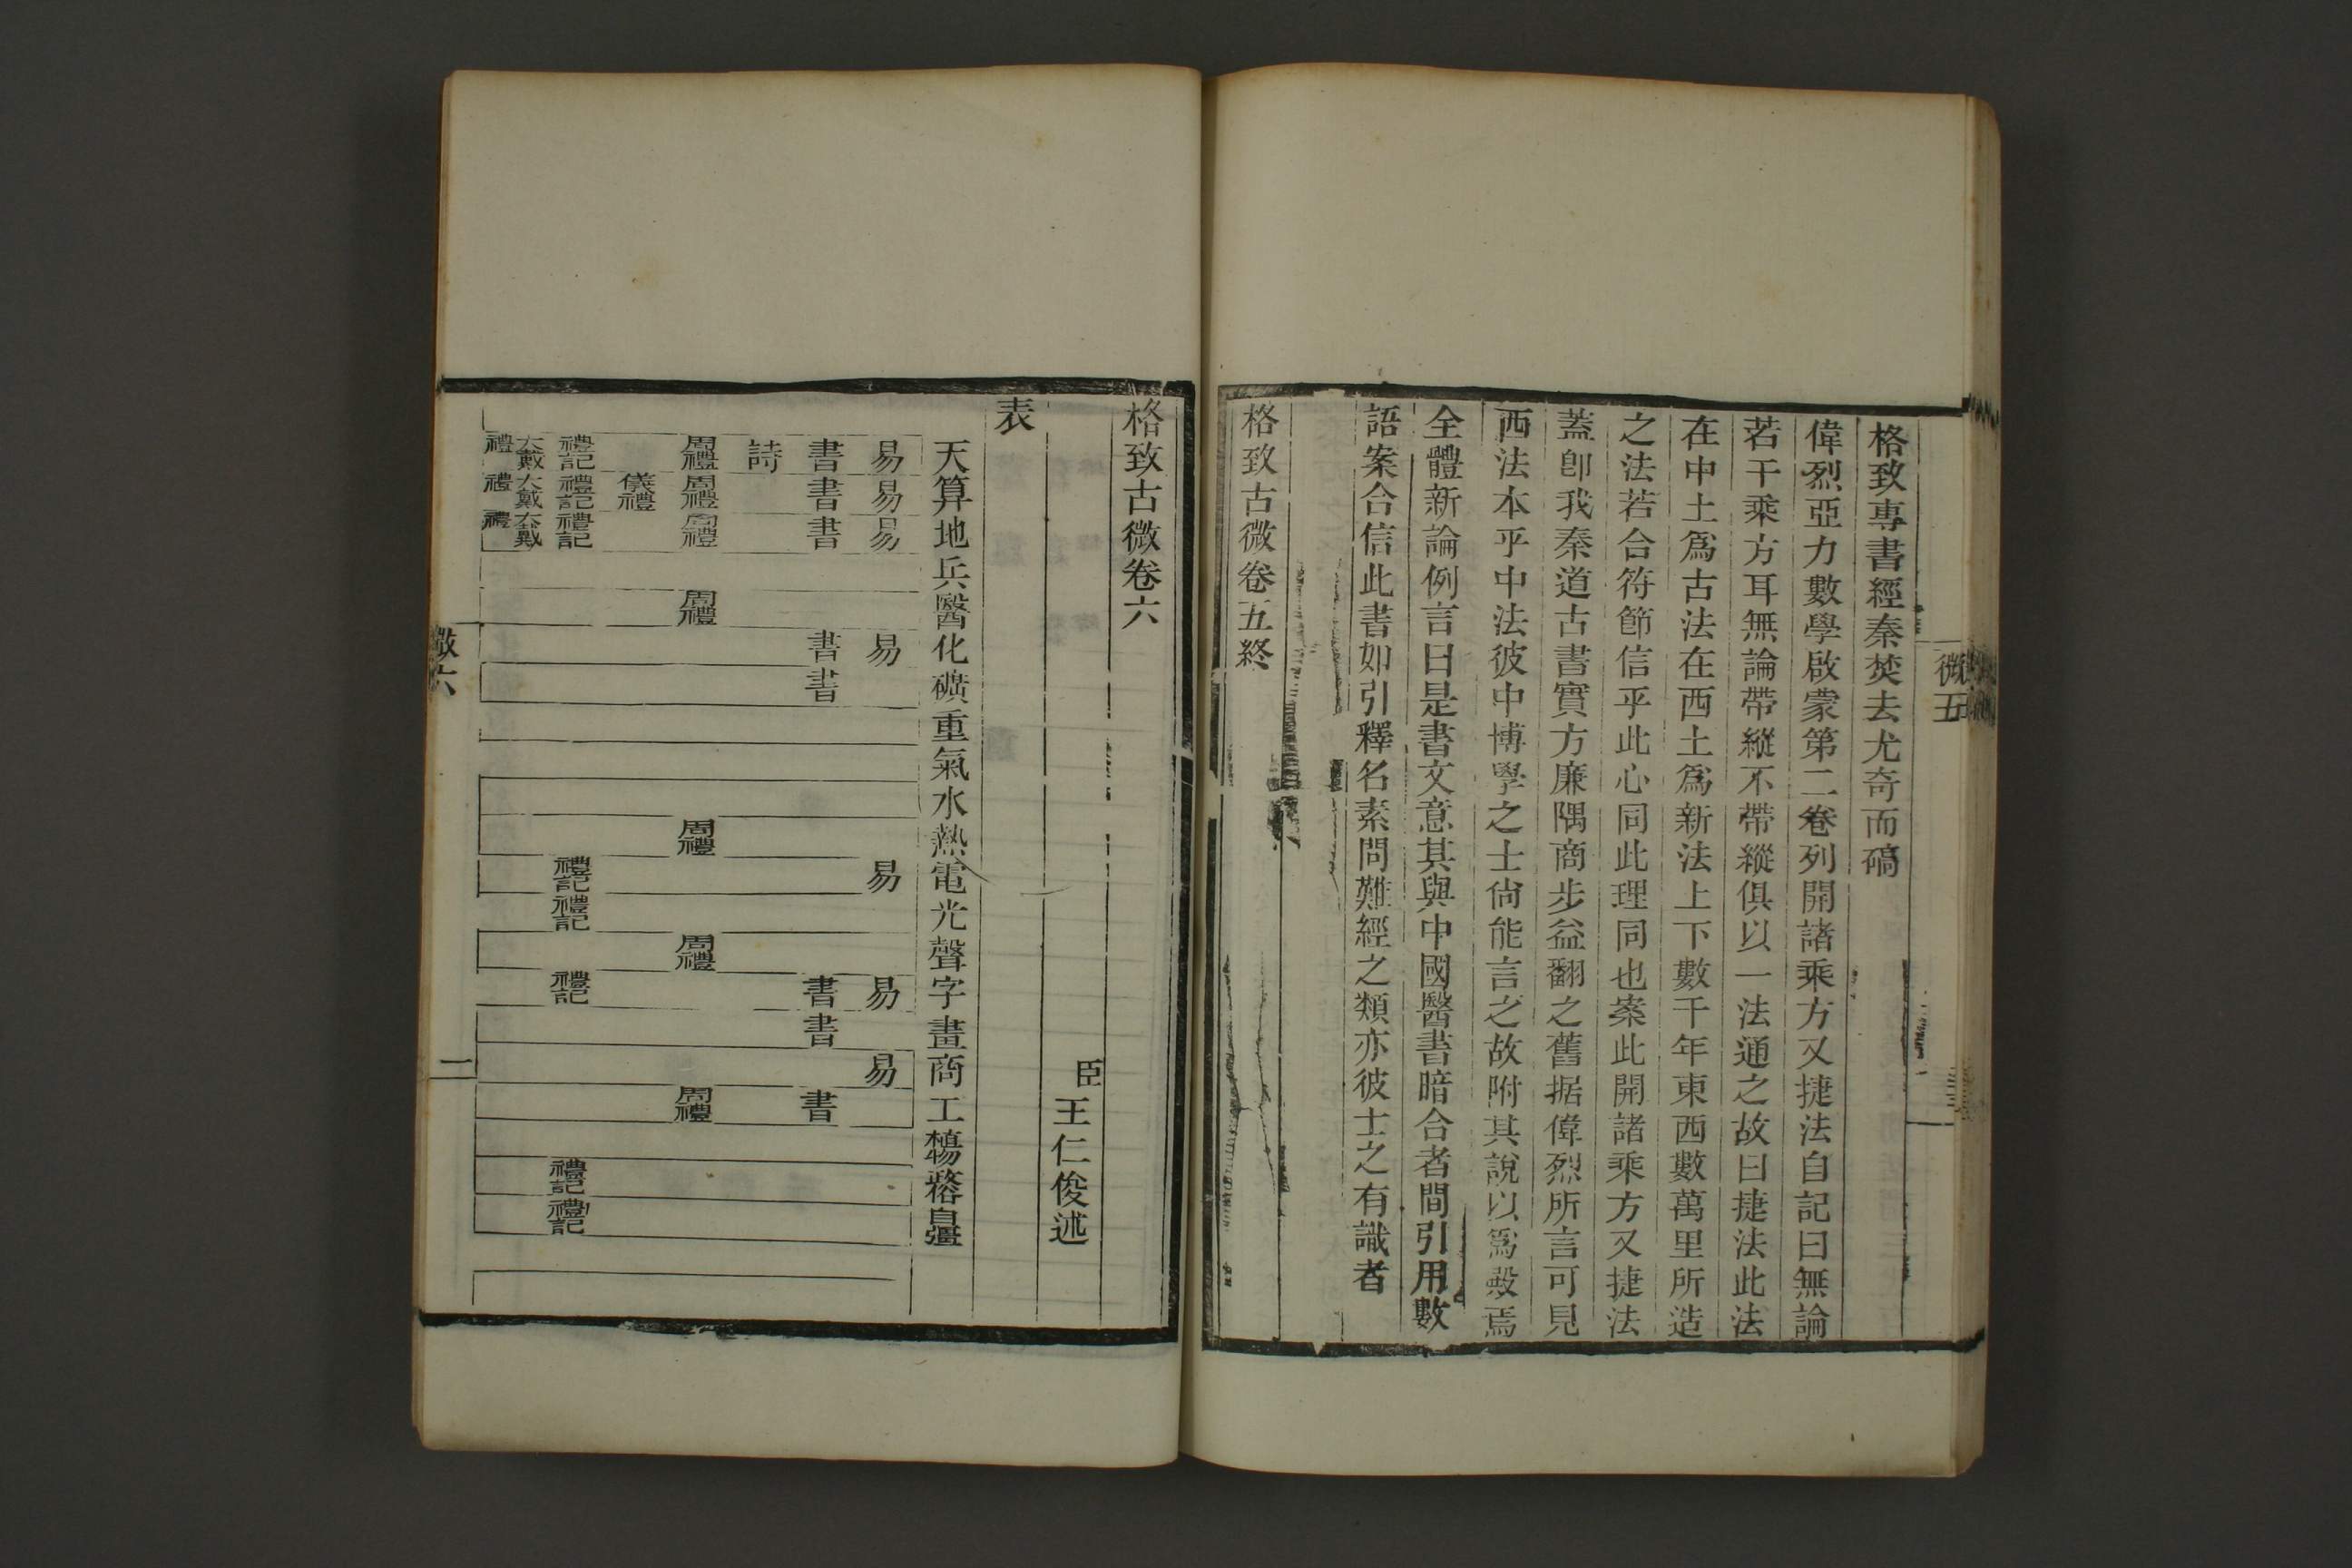 格致專書經秦焚去尤奇而碻
偉烈亞力數學啟蒙第二卷列開諸乘方又捷法自記曰無論
若干乘方耳無論帶縱不帶縱俱以一法通之故曰捷法此法
在中土爲古法在西土爲新法上下數千年東西數萬里所造
之法若合符節信乎此心同此理同也案此開諸乘方又捷法
蓋卽我秦道古書實方廉隅商步益翻之舊据偉烈所言可見
西法本乎中法彼中博學之士尙能言之故附其說以爲殿焉
全體新論例言曰是書文意其與中國醫書暗合者間引用數
語案合信此書如引釋名素問難經之類亦彼士之有識者
格致古微卷五終
微五
格致古微卷六
臣王仁俊述
表
天算地兵醫化礦重氣水熱電光聲字畫商工植務自彊
易易易易易易易
書書書書書書書書
詩
周禮周禮周禮周禮周禮周禮周禮
儀禮
禮記禮記禮記禮記禮記禮記禮記禮記
大戴禮大戴禮大戴禮
微六
一